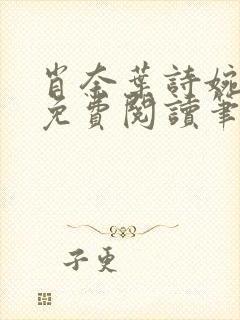 肖奈葉詩婉
免費閱讀筆
子更